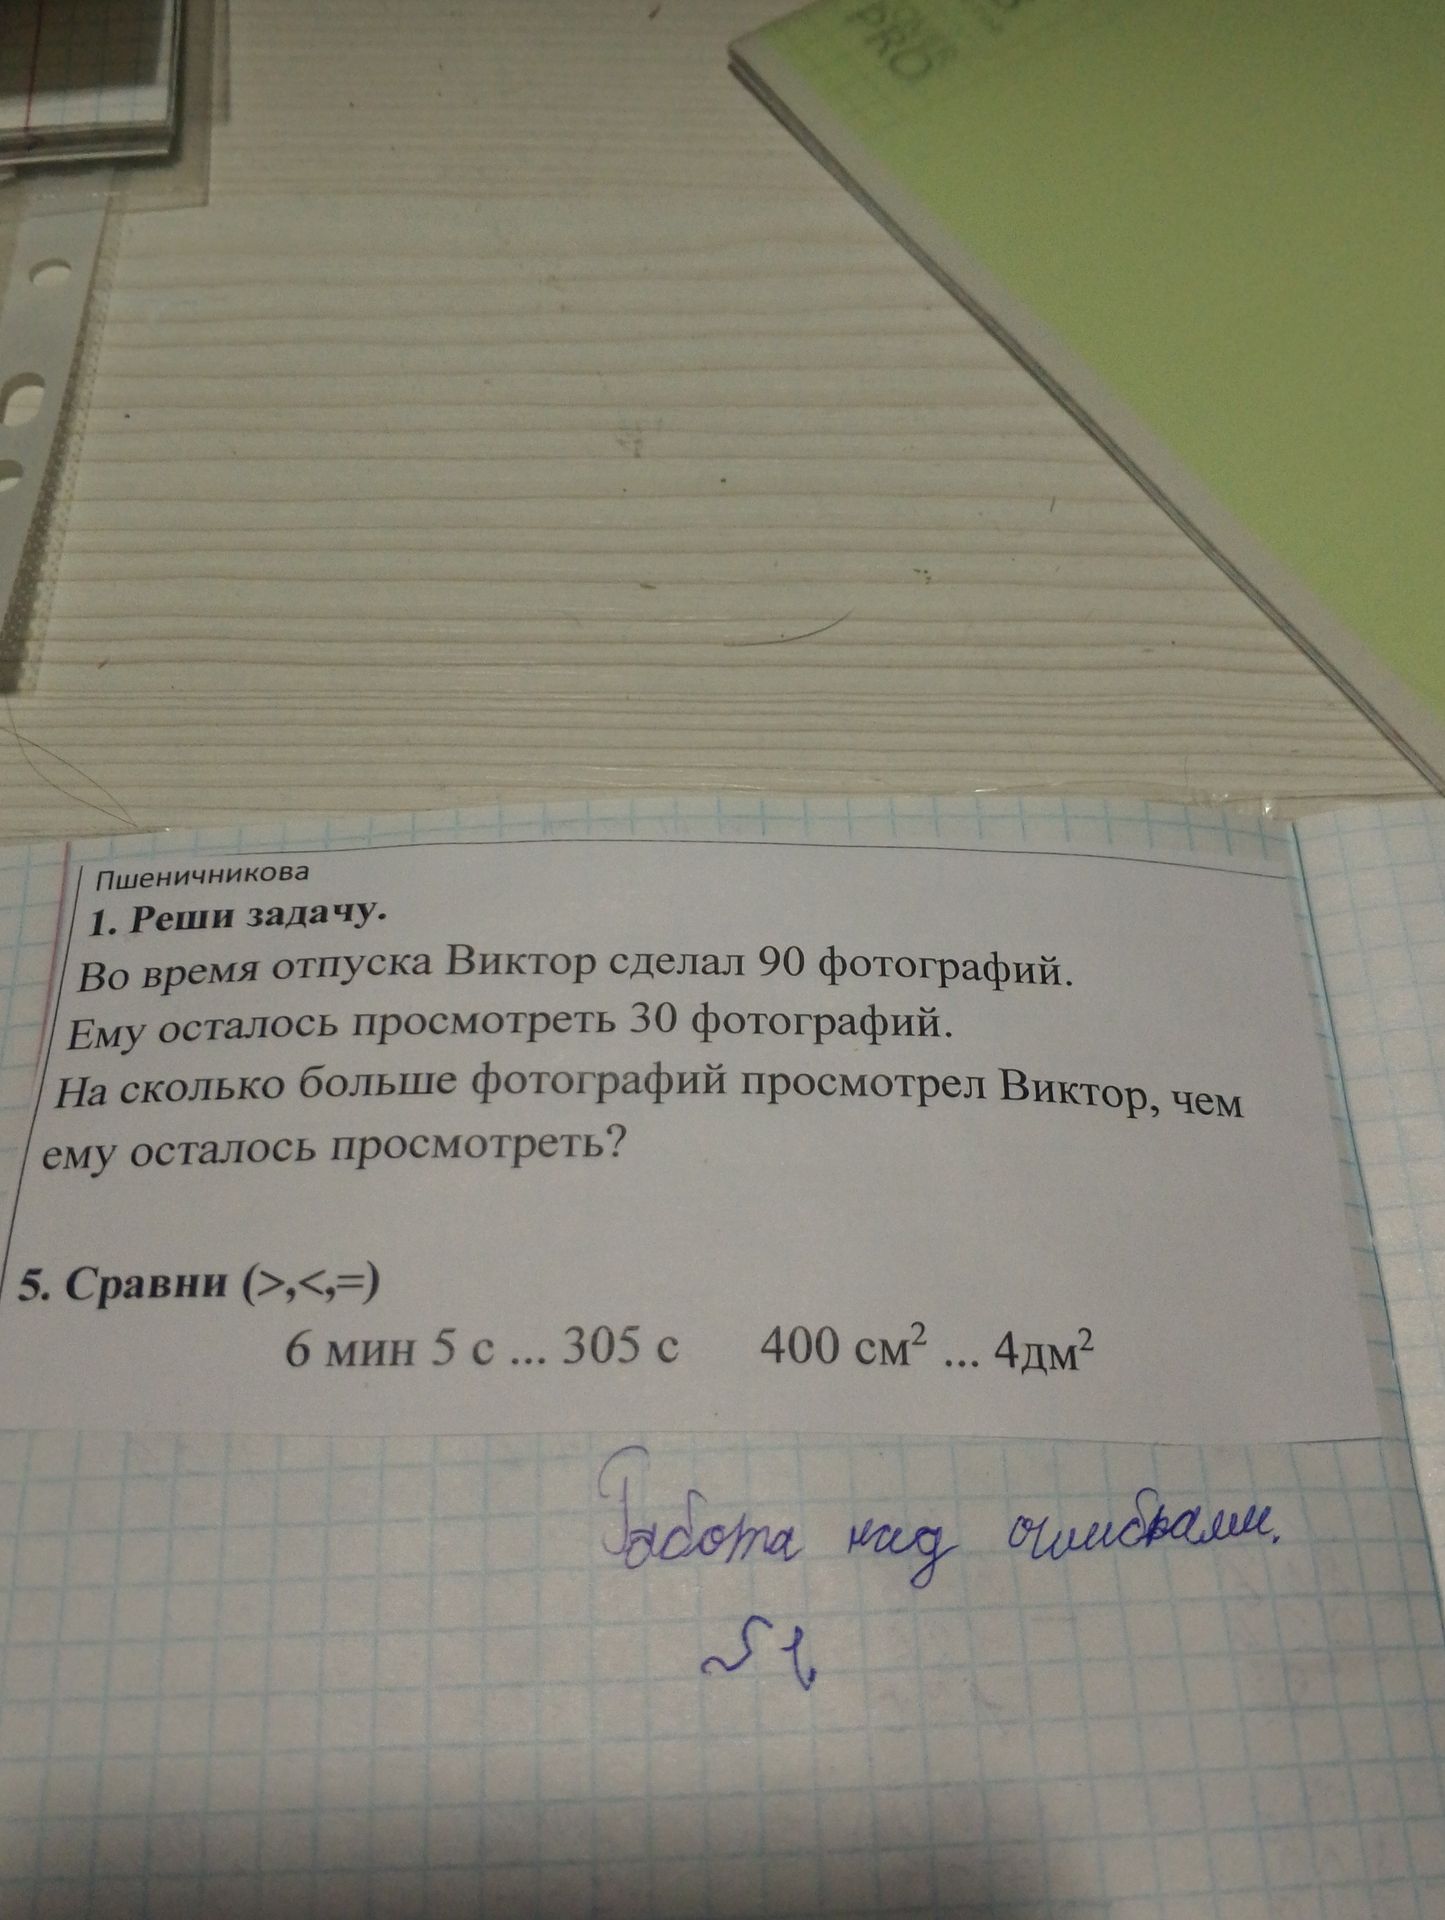 PRO
Пшеничникова
1. Реши задачу.
Во время отпуска Виктор сделал 90 фотографий.
Ему осталось просмотреть 30 фотографий.
На сколько больше фотографий просмотрел Виктор, чем
ему осталось просмотреть?
5. Сравни (>,<,=)
6 мин 5 с ... 305 с 400 см² ... 4дм²
Работа над ошибками.